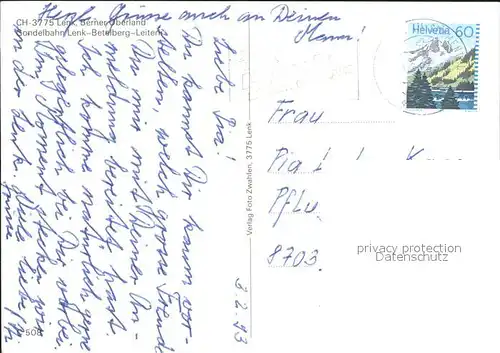 Herzl. Grüsse auch an Deinen
Mann!
CH-3775 Lenk, Berner Oberland
Gondelbahn Lenk–Betelberg–Leiterli
Liebe Pia!
Du kannst Dir kaum vor-
stellen, welch grosse Freude
Du mir mit Deiner An-
meldung bereitet hast.
Ich komme natürlich gerne
bei Dir vorbei.
Im Moment stecken wir
in der Lenk. Viele liebe
Grüsse
3.2.93
Verlag Foto Zwahlen, 3775 Lenk
508
Helvetia 60
Frau
Pia
8703
privacy protection
Datenschutz